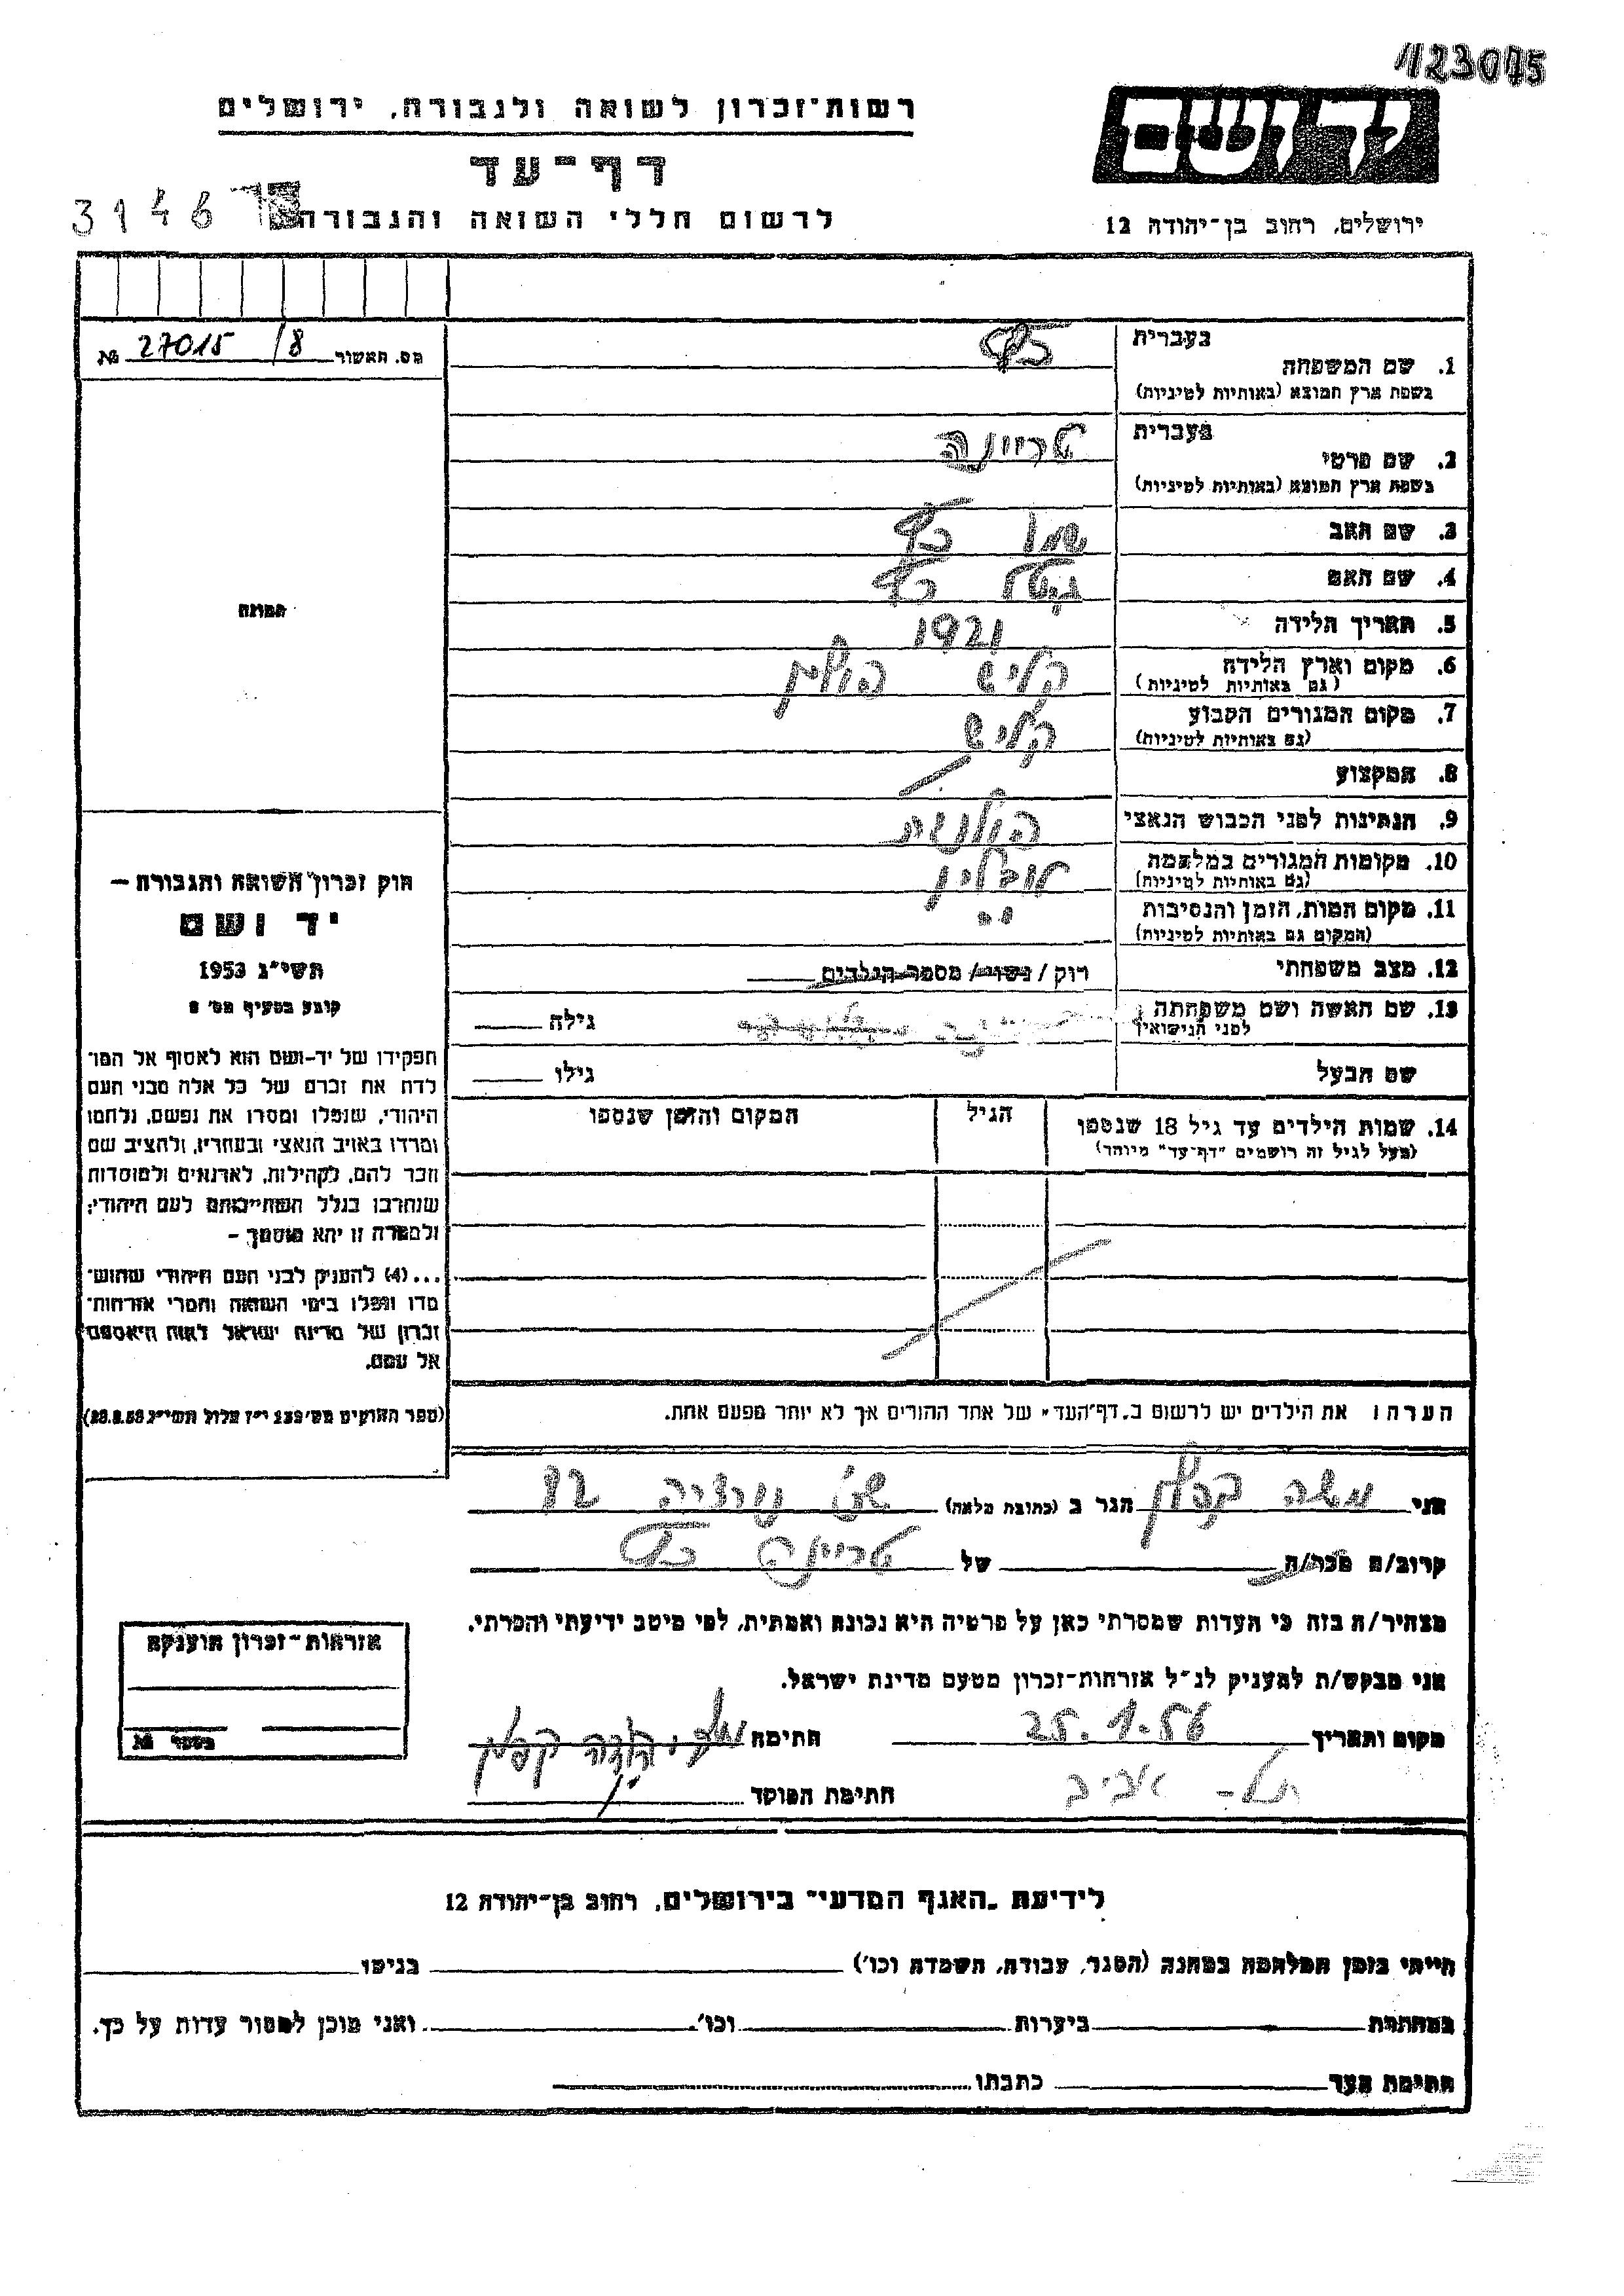 123075
רשות-זכרון לשואה ולגבורה, ירושלים
יד ושם
דף-עד
3146
לרשום חללי השואה והגבורה
ירושלים, רחוב בן-יהודה 12
מס. האשור 27015/8 №
בעברית
1. שם המשפחה כץ
בשפת ארץ המוצא (באותיות לטיניות)
בעברית
2. שם פרטי
בשפת ארץ המוצא (באותיות לטיניות)
3. שם האב כץ
4. שם האם גיטל כץ
5. תאריך הלידה 1921
6. מקום וארץ הלידה קליש פולין
(גם באותיות לטיניות)
7. מקום המגורים הקבוע קליש
(גם באותיות לטיניות)
8. המקצוע
9. הנתינות לפני הכבוש הנאצי פולנית
10. מקומות המגורים במלחמה לובלין
(גם באותיות לטיניות)
11. מקום המות, הזמן והנסיבות
(המקום גם באותיות לטיניות)
12. מצב משפחתי רוק / נשוי / מספר הילדים
13. שם האשה ושם משפחתה גילה
לפני הנישואין
שם הבעל גילו
14. שמות הילדים עד גיל 18 שנספו הגיל המקום והזמן שנספו
(מעל לגיל זה רושמים "דף-עד" מיוחד)
תמונה
חוק זכרון השואה והגבורה –
יד ושם
תשי"ג 1953
קובע בסעיף מס׳
תפקידו של יד-ושם הוא לאסוף אל המו-
לדת את זכרם של כל אלה מבני העם
היהודי, שנפלו ומסרו את נפשם, נלחמו
ומרדו באויב הנאצי ובעוזריו, ולהציב שם
וזכר להם, לקהילות, לארגונים ולמוסדות
שנחרבו בגלל השתייכותם לעם היהודי;
ולמטרה זו יהא מוסמך –
...(4) להעניק לבני העם היהודי שהוש-
מדו ונפלו בימי השואה והמרי אזרחות-
זכרון של מדינת ישראל לאות היאספם
אל עמם.
(ספר החוקים מס׳ 132 י"ז אלול תשי"ג 28.8.53)
הערה: את הילדים יש לרשום ב„דף-העד" של אחד ההורים אך לא יותר מפעם אחת.
אני משה קפלן הגר ב (כתובת מלאה) 82
קרוב/ה מכר/ה של כץ
מצהיר/ה בזה כי העדות שמסרתי כאן על פרטיה היא נכונה ואמתית, לפי מיטב ידיעתי והכרתי.
אני מבקש/ת להעניק לנ"ל אזרחות-זכרון מטעם מדינת ישראל.
מקום ותאריך 25.1.56 חתימה יהודה קפלן
תל-אביב חתימת הפוקד
אזרחות-זכרון הוענקה
בספר №
לידיעת „האגף המדעי" בירושלים, רחוב בן-יהודה 12
הייתי בזמן המלחמה במחנה (הסגר, עבודה, השמדה וכו׳) בגיטו
במחתרת ביערות וכו׳ ואני מוכן למסור עדות על כך.
חתימת העד כתבתו